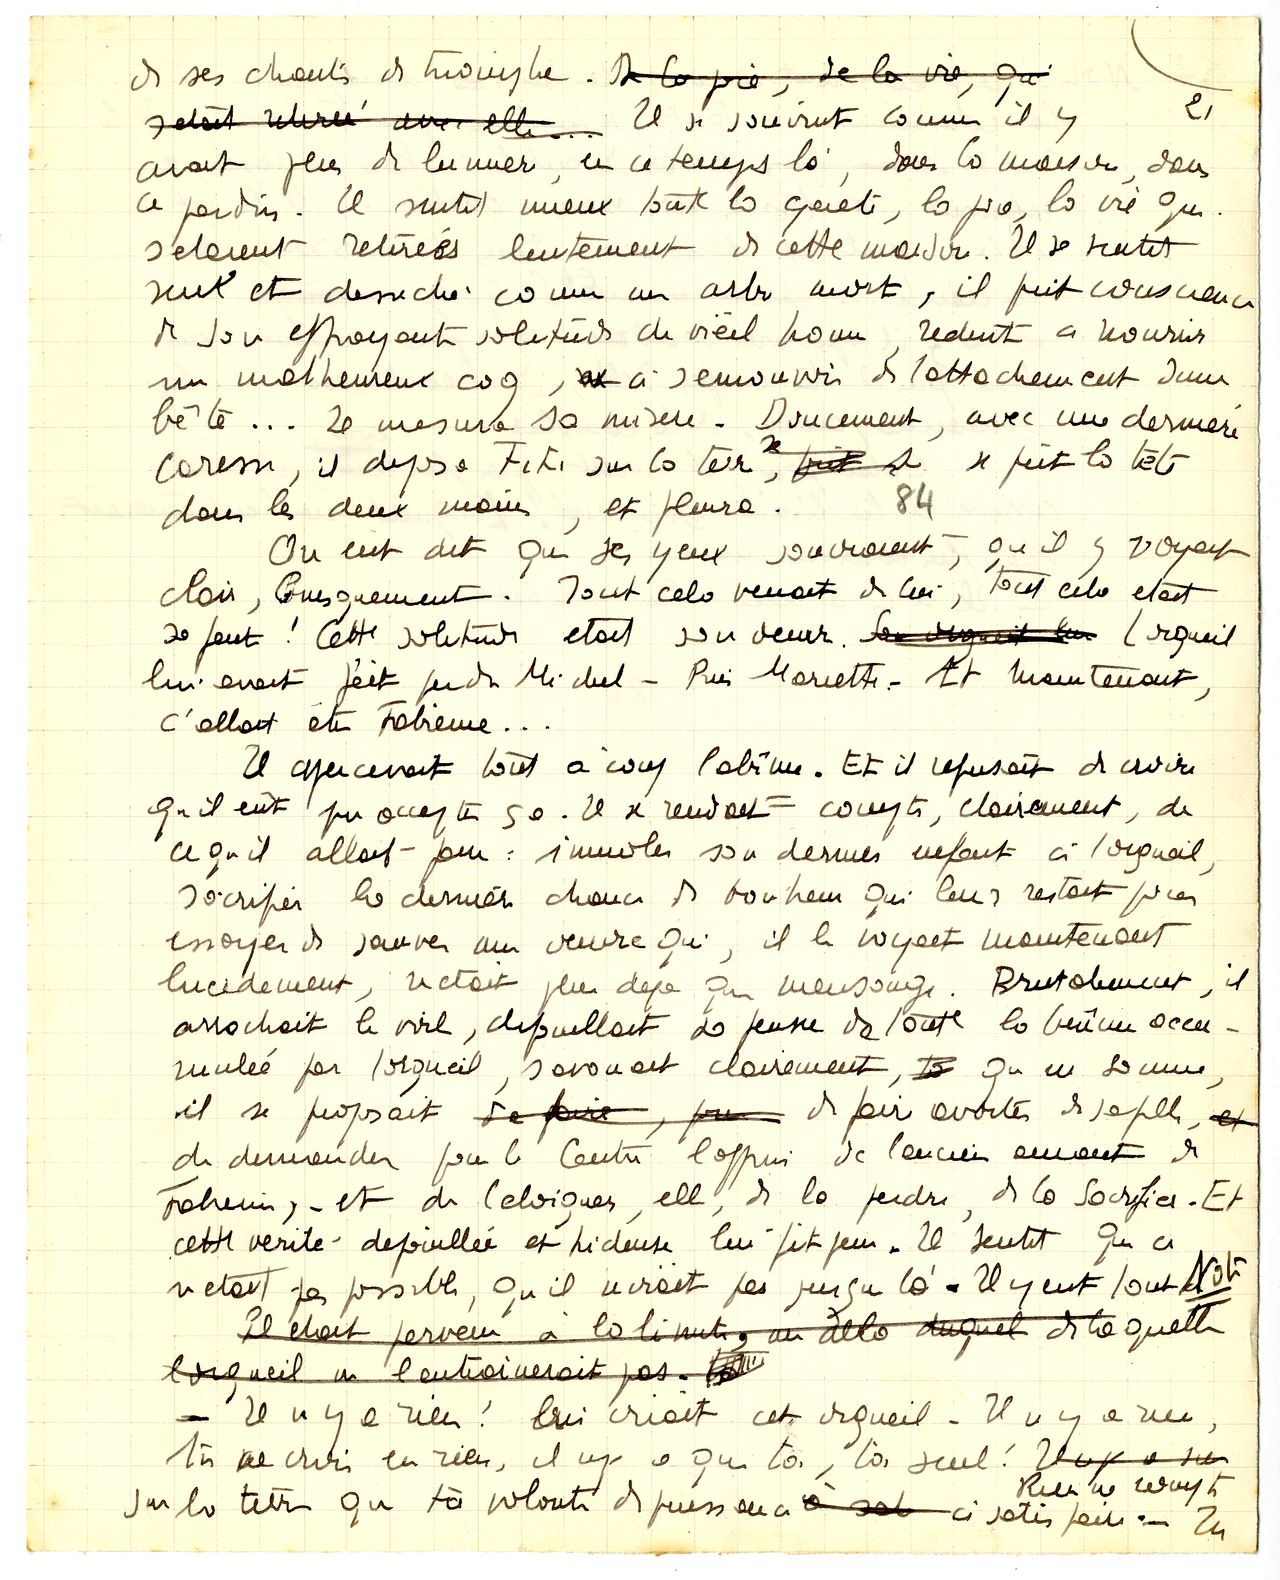 21
de ses chants de triomphe. De la joie, de la vie, qui
s'était retirée avec elle... Il se souvint comme il y
avait plus de lumière, en ce temps là, dans la maison, dans
ce jardin. Il sentit mieux toute la gaieté, la joie, la vie qui
s'étaient retirées lentement de cette maison. Il se sentit
seul et desséché comme un arbre mort, il prit conscience
de son effroyante solitude de vieil homme, réduit à nourrir
un malheureux coq, et à s'émouvoir de l'attachement d'une
bête... Il mesura sa misère. Doucement, avec une dernière
caresse, il déposa Fifi sur la terre, se prit la tête
dans les deux mains, et pleura.
84
On eut dit que ses yeux s'ouvraient, qu'il y voyait
clair, brusquement. Tout cela venait de lui, tout cela était
sa faute ! Cette solitude était son œuvre. Son orgueil lui L'orgueil
lui avait fait perdre Michel - Puis Mariette. - Et maintenant,
c'allait être Fabienne...
Il apercevait tout à coup l'abîme. Et il refusait de croire
qu'il eût pu accepter ça. Il se rendait compte, clairement, de
ce qu'il allait faire : immoler son dernier enfant à l'orgueil,
sacrifier la dernière chance de bonheur qui leur restait pour
essayer de sauver une œuvre qui, il le voyait maintenant
lucidement, n'était plus déjà que mensonge. Brutalement, il
arrachait le voile, dépouillait sa pensée de toute la brume accu-
mulée par l'orgueil, s'avouait clairement, qu'en somme,
il se proposait de faire, de faire avorter sa fille, et
de demander pour le Centre l'appui de l'ancien amant de
Fabienne, - et de l'éloigner, elle, de la perdre, de la sacrifier. - Et
cette vérité dépouillée et hideuse lui fit peur. Il sentit que ce
n'était pas possible, qu'il n'irait pas jusque là. Il y eut tout
Il était parvenu à la limite, au delà duquel de laquelle
l'orgueil ne l'entraînerait pas.
- Il n'y a rien ! lui criait cet orgueil - Il n'y a rien,
tu ne crois en rien, il n'y a que toi, toi seul ! Il n'y a rien
Rien ne compte
sur la terre que ta volonté de puissance à satisfaire. - Tu